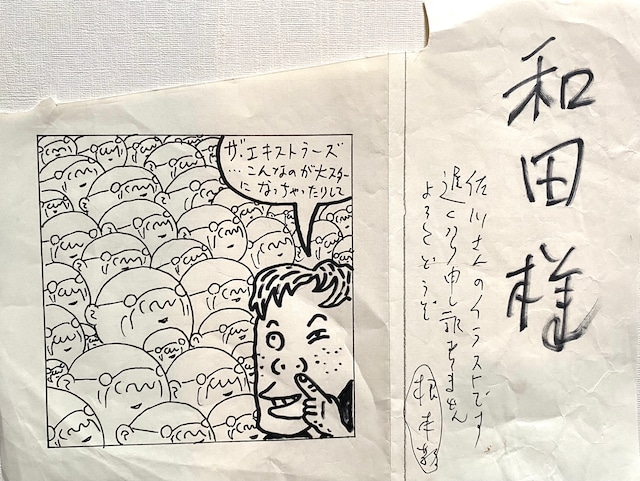 和田様
佐川さんのイラストです
遅くなり申し訳ありません
よろしくどうぞ
根本敬
ザ・エキストラーズ
…こんなのが大スター
になっちゃったりして